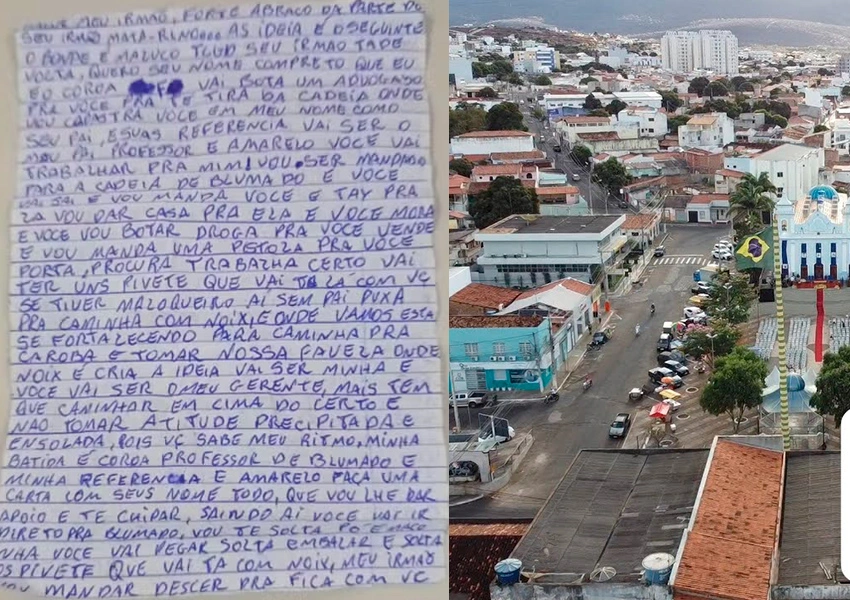 MEU IRMÃO, FORTE ABRAÇO DA PARTE DO
SEU IRMÃO MATA-RINDOCO AS IDEIA E OSEGUINTE
O BONDE E MALUCO TCUD SEU IRMÃO TADE
VOLTA, QUERO SEU NOME COMPRETO QUE EU
EO COROA VAI BOTA UM ADVOGADO
PRA VOCE PRA TE TIRA DA CADEIA ONDE
VOU CAPASTRA VOCE EM MEU NOME COMO
SEU PAI, ESUAS REFERENCIA VAI SER O
MEU PAI PROFESSOR E AMARELO VOCE VAI
TRABALHAR PRA MIM, VOU SER MANDADO
PARA A CADEIA DE BLUMADO E VOCE
VAI SAI E VOU MANDA VOCE E TAY PRA
LA VOU DAR CASA PRA ELA E VOCE MORA
E VOCE VOU BOTAR DROGA PRA VOCE VENDE
E VOU MANDA UMA PETOLA PRA VOCE
PORTA, PROCURA TRABALHA CERTO VAI
TER UNS PIVETE QUE VAI TA LÁ COM VC
SE TIVER MALOQUEIRO AI SEM PAI PUXA
PRA CAMINHA COM NOIX, E ONDE VAMOS ESTA
SE FORTALECENDO PARA CAMINHA PRA
CAROBA E TOMAR NOSSA FAVELA ONDE
NOIX E CRIA A IDEIA VAI SER MINHA E
VOCE VAI SER O MEU GERENTE, MAIS TEM
QUE CAMINHAR EM CIMA DO CERTO E
NÃO TOMAR ATITUDE PRECIPITADA E
ENSOLADA, POIS VÇ SABE MEU RITMO, MINHA
BATIDA É COROA PROFESSOR DE BLUMADO E
MINHA REFERENCIA E AMARELO FAÇA UMA
CARTA COM SEUS NOME TODO, QUE VOU LHE DAR
APOIO E TE CUIDAR, SAINDO AI VOCE VAI IR
DIRETO PRA BLUMADO, VOU TE SOLTA PO E MACO
NHA VOCE VAI PEGAR SOLTA EMBALAR E SOLTA
OS PIVETE QUE VAI TA COM NOIX, MEU IRMÃO
VOU MANDAR DESCER PRA FICA COM VC